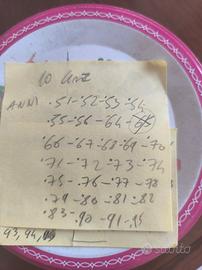 10 Lire
ANNI .51-52-53-54
55-56-64-65
66-67-68-69-70
.71-.72-73-74
.75-.76-77-78
.79-80-81-82
.83-90-91-95
93,94,
subito